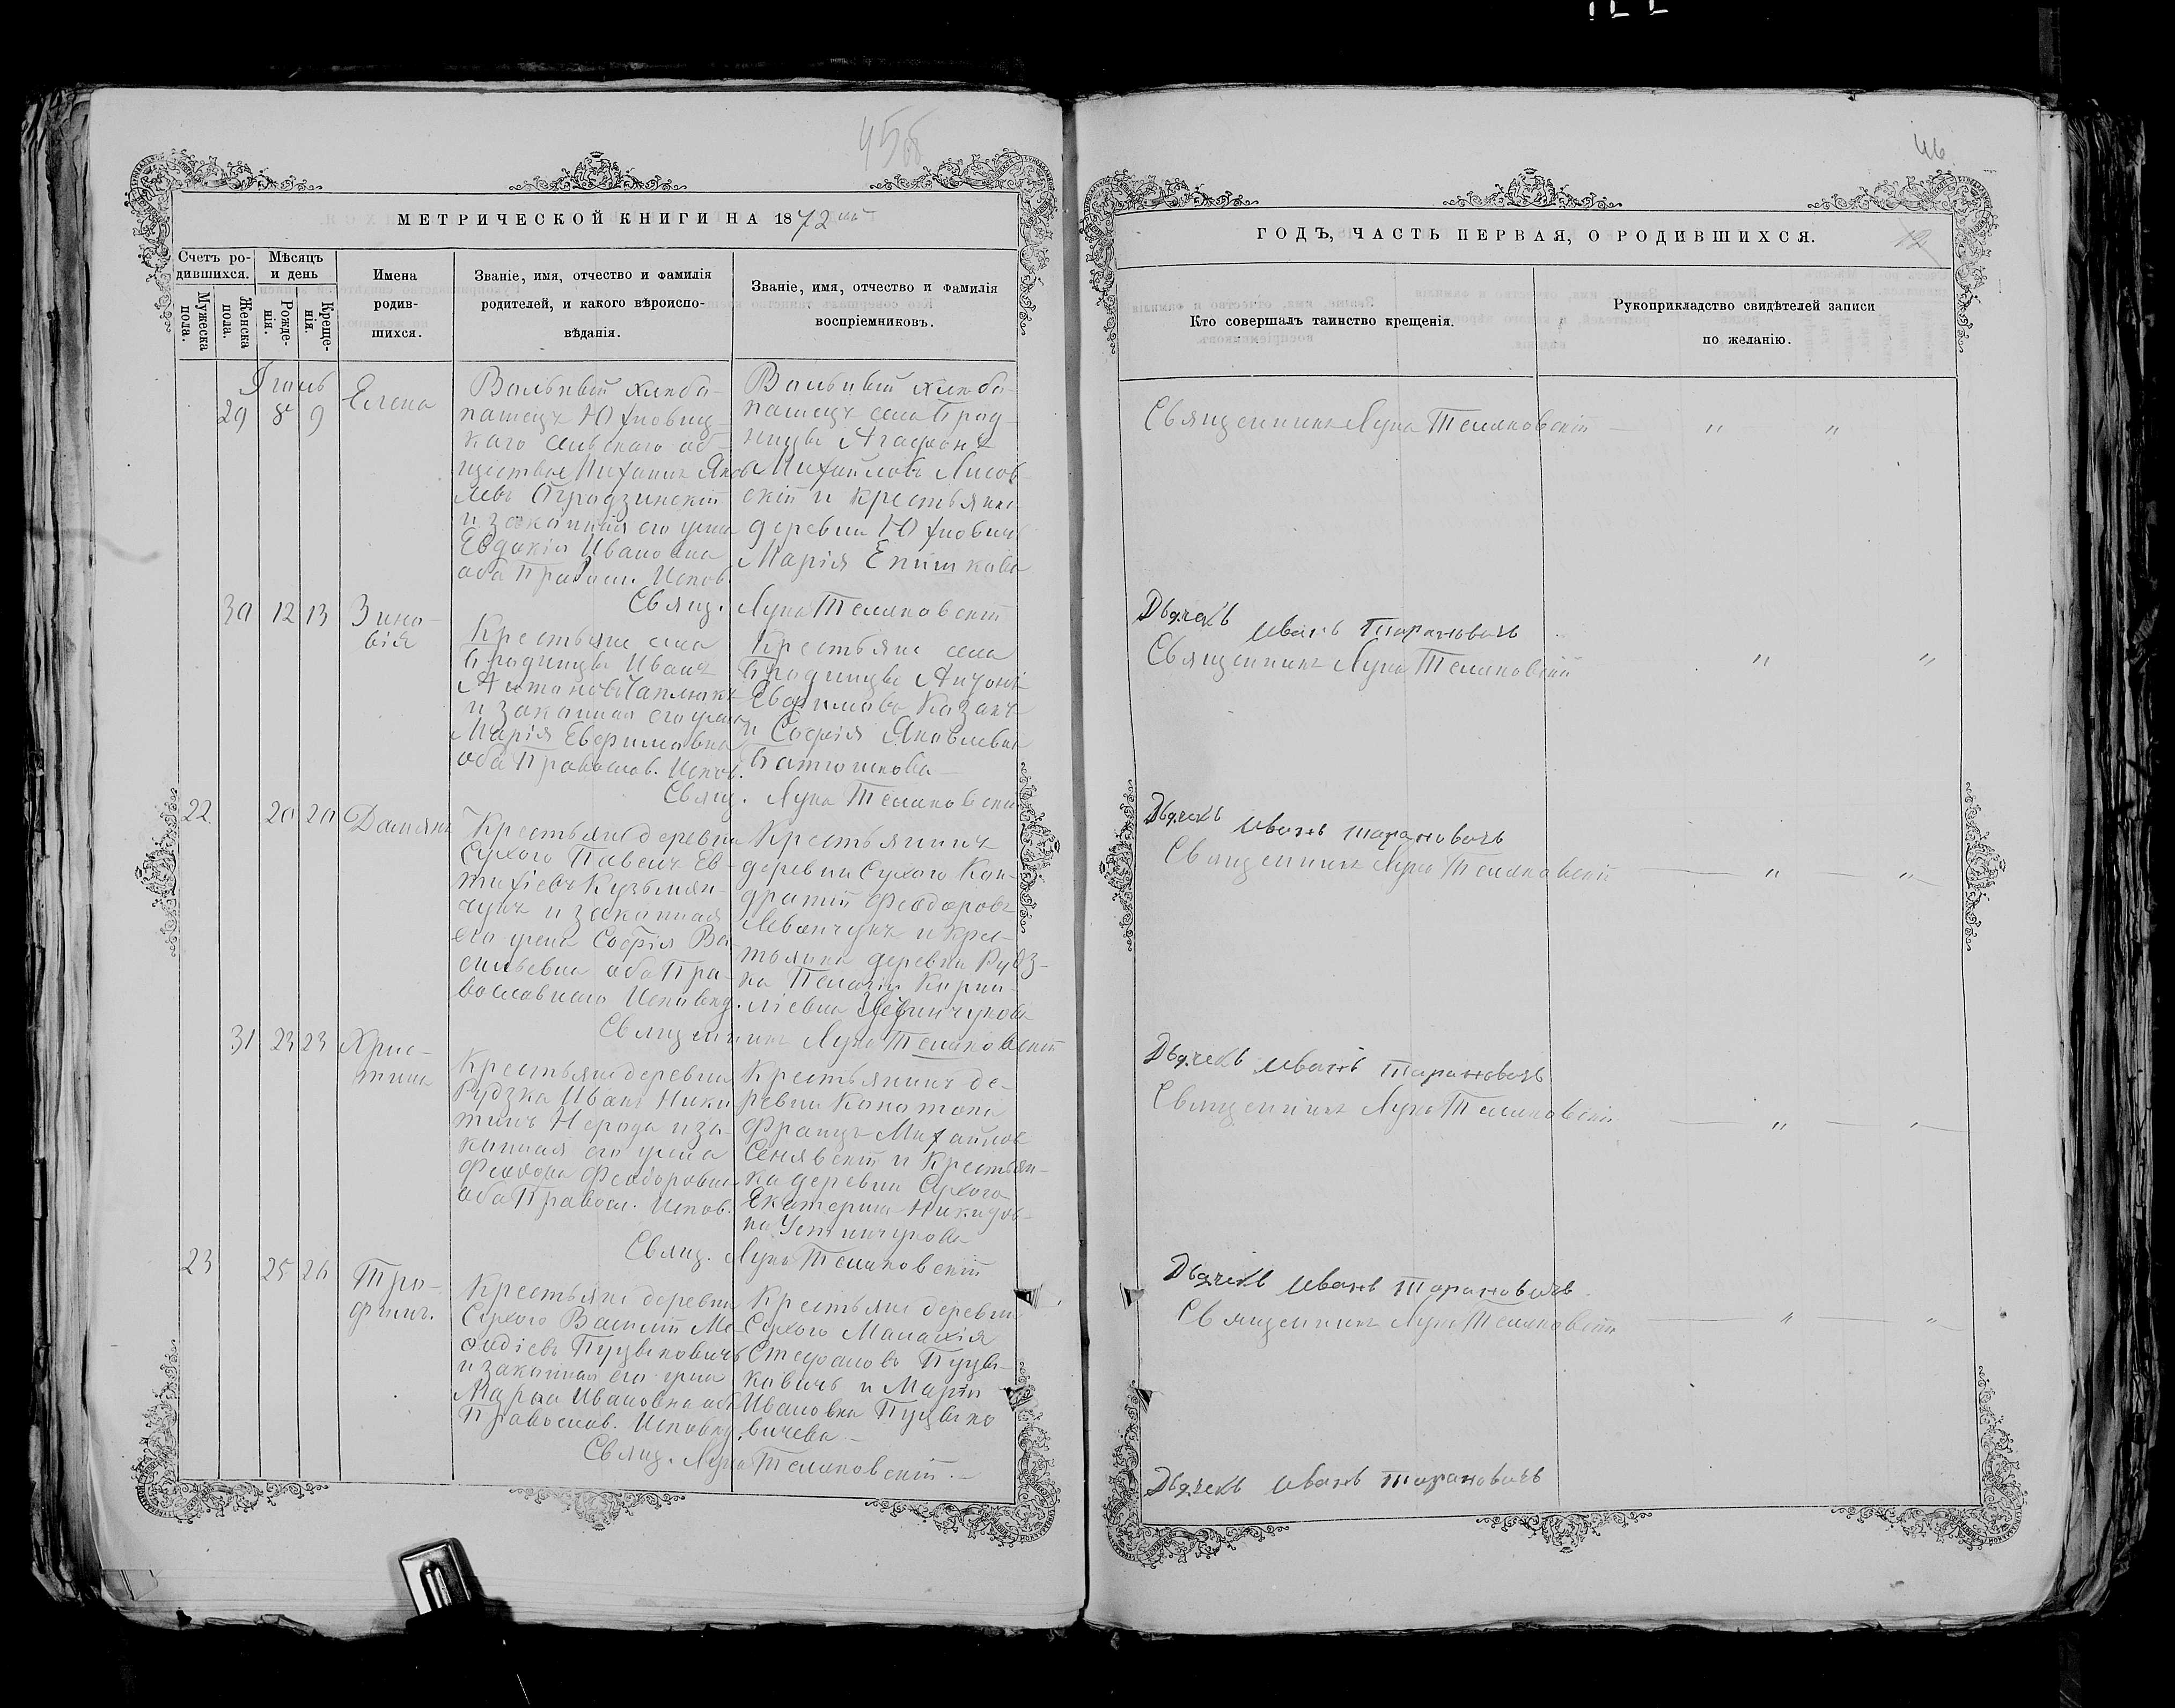 45об
МЕТРИЧЕСКОЙ КНИГИ НА 1872
Счетъ ро-
дившихся.
Мужеска
пола.
Женска
пола.
Мѣсяцъ
и день
Рожде-
нія.
Креще-
нія.
Имена
родив-
шихся.
Званіе, имя, отчество и фамилія
родителей, и какого вѣроиспо-
вѣданія.
Званіе, имя, отчество и фамилія
воспріемниковъ.
29 8 9 Елена
Вольный хлебо-
пашецъ Юхновиц-
каго сельскаго об-
щества Михаилъ Яков
левъ Огродзинскій
и законная его жена
Евдокія Иванова
оба Правосл. Испов.
Вольный хлебо-
пашецъ села Брод-
ницы Агафонъ
Михайловъ Лисов-
скій и крестьянка
деревни Юхновичъ
Марія
Свящ. Лука Теляковскій
30 12 13 Зино-
вія
Крестьяне села
Бродницы Иванъ
и законная его жена
Марія Евфимовна
оба Православ. Испов.
Крестьяне села
Бродницы Антоній
Евфимовъ Казакъ
и Софія Яковлевна
Свящ. Лука Теляковскій
22 20 20 Даміянъ
Крестьяне деревни
Сухого Павелъ Ев-
тихіевъ Кузьмин-
чукъ и законная
его жена Софія Ва-
сильевна оба Пра-
вославнаго Исповед.
Крестьянинъ
деревни Сухого Кон-
дратій Феодоровъ
Леванчукъ и крес-
тьянка деревни Рудз-
ка Пелагія Кирил-
ліевна
Священникъ Лука Теляковскій
31 23 23 Хрис-
тина
Крестьяне деревни
Рудзка Иванъ Ники
тинъ Нерода и за-
конная его жена
Феодоровна
оба Правосл. Испов.
Крестьянинъ де-
ревни
Францъ Михайлов
Сенявскій и Крестьян-
ка деревни Сухого
Екатерина
на Устинчукова
Свящ. Лука Теляковскій
23 25 26 Тро-
фимъ.
Крестьяне деревни
Сухого Василій Ме-
ѳодіевъ Пуцыковичъ
и законная его жена
Марья Ивановна оба
Православ. Исповед.
Крестьяне деревни
Сухого Малахія
Стефановъ Пуцы-
ковичъ и Марія
Ивановна Пуцыко
вичева.
Свящ. Лука Теляковскій.
46
ГОДЪ, ЧАСТЬ ПЕРВАЯ, О РОДИВШИХСЯ.
12
Кто совершалъ таинство крещенія.
Рукоприкладство свидѣтелей записи
по желанію.
Священникъ Лука Теляковскій — " "
Дьячекъ Иванъ Тарановичъ
Священникъ Лука Теляковскій " "
Дьячекъ Иванъ Тарановичъ
Священникъ Лука Теляковскій — " — " —
Дьячекъ Иванъ Тарановичъ
Священникъ Лука Теляковскій — " — " —
Дьячекъ Иванъ Тарановичъ
Священникъ Лука Теляковскій — " — " —
Дьячекъ Иванъ Тарановичъ